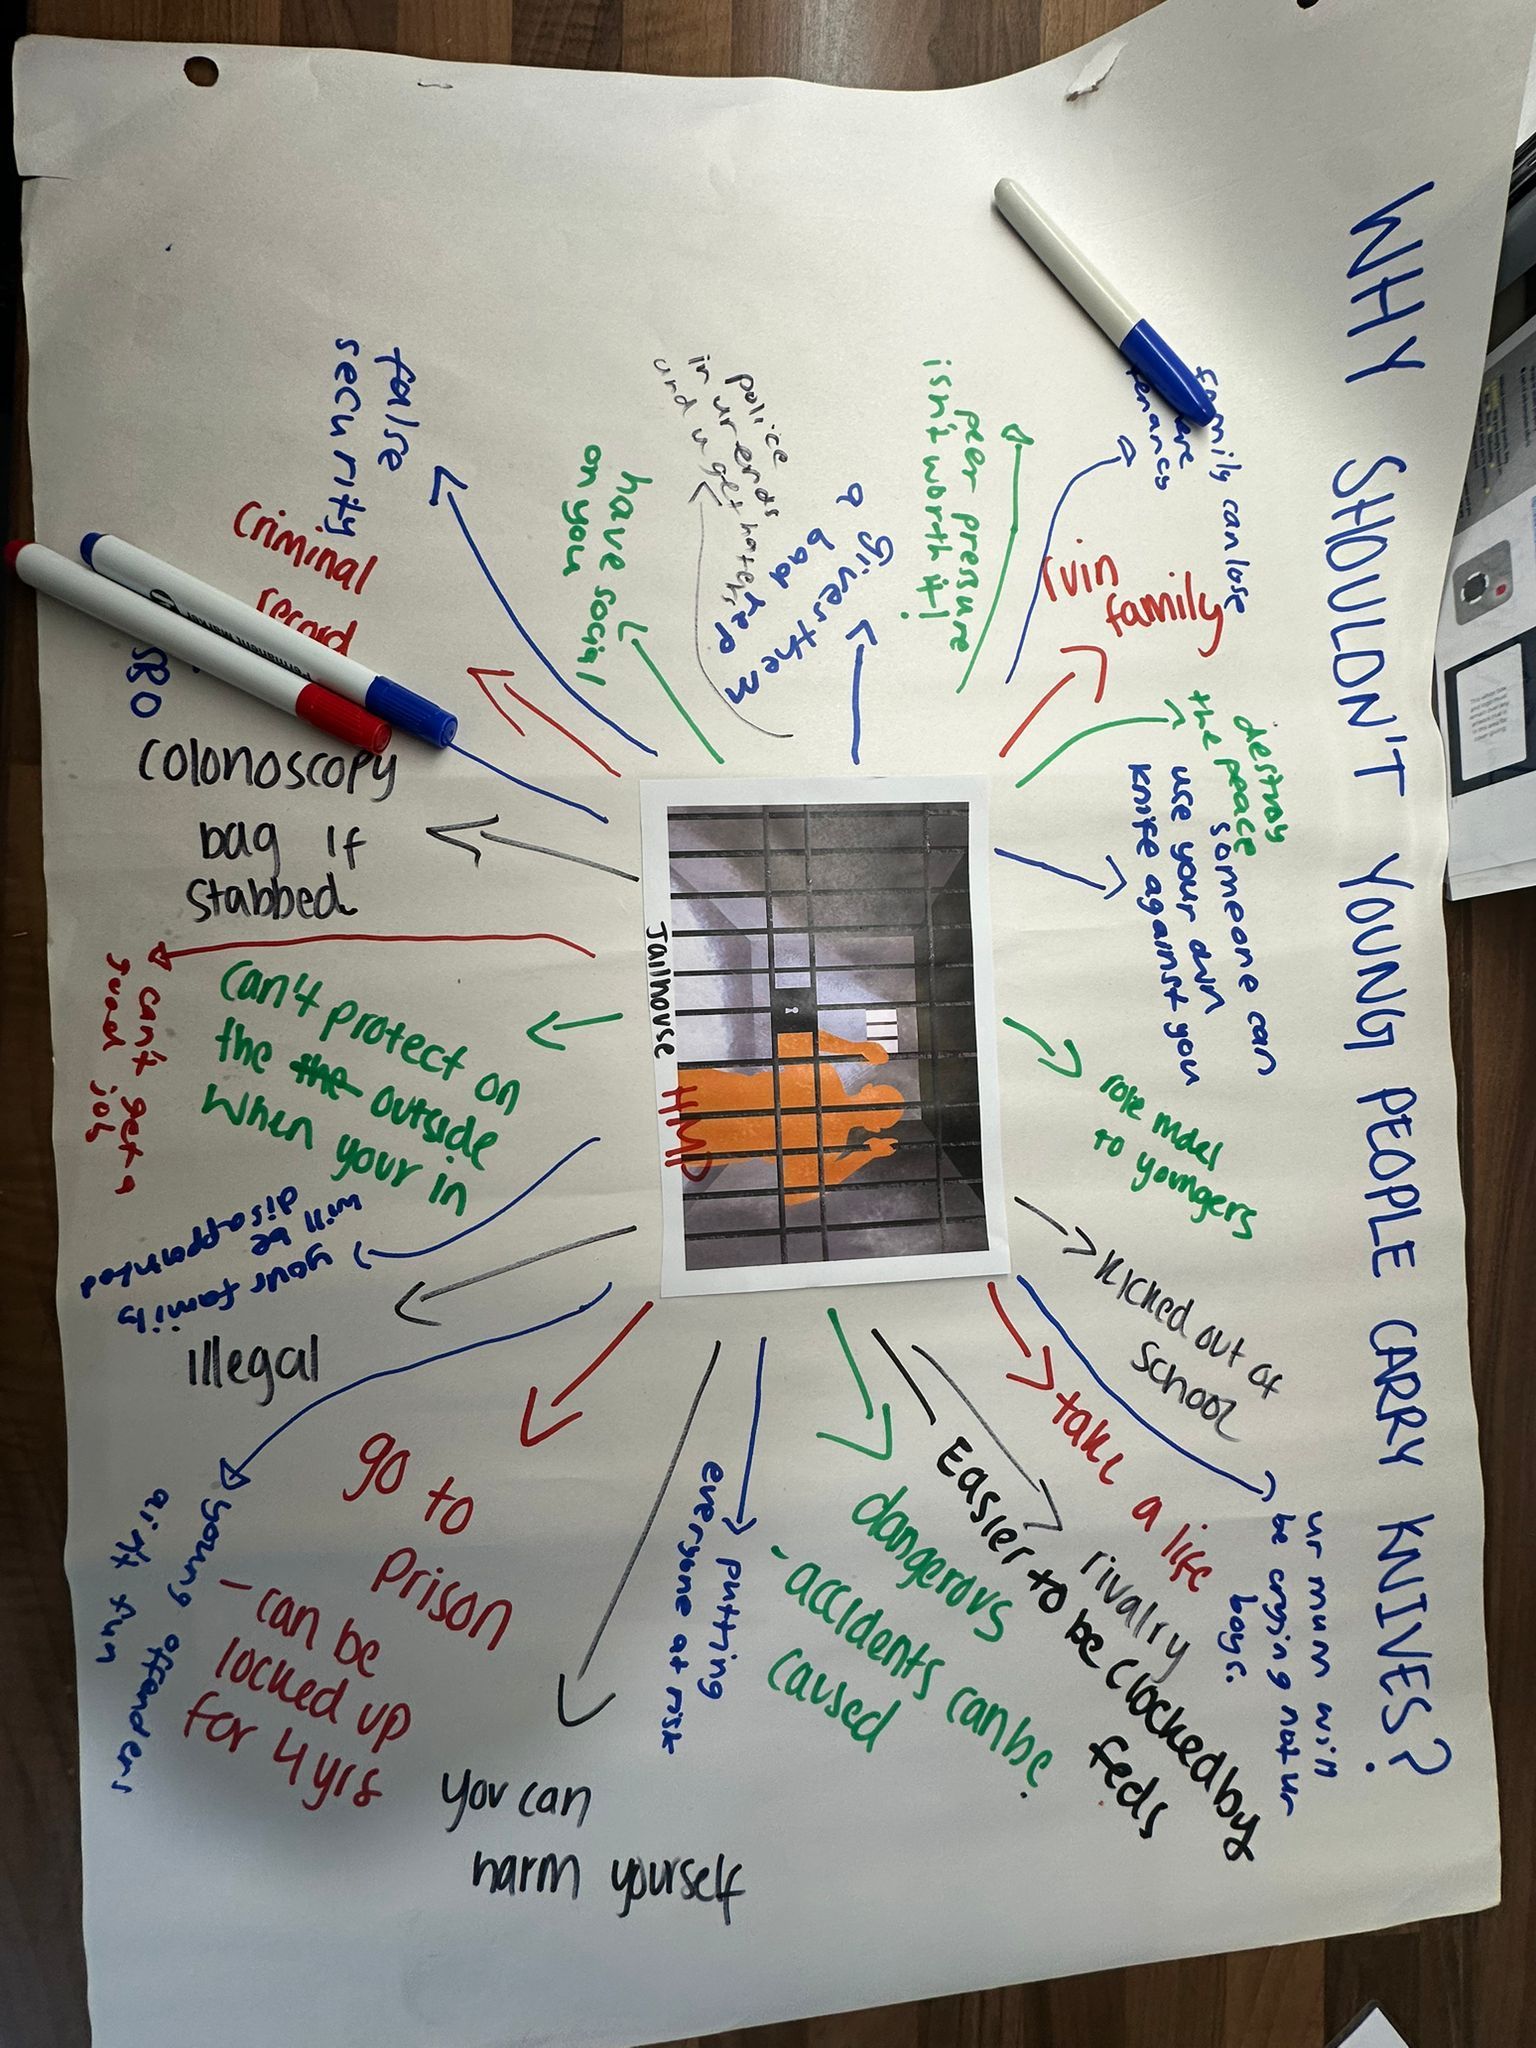 WHY SHOULDN'T YOUNG PEOPLE CARRY KNIVES?
family can lose
tenancy
ruin
family
destroy
the peace
someone can
use your own
knife against you
role model
to youngers
kicked out of
school
ur mum will
be crying not ur
boys.
take a life
rivalry
Easier to be clocked by
feds
dangerous
- accidents can be
caused
putting
everyone at risk
you can
harm yourself
go to
prison
- can be
locked up
for 4 yrs
young offenders
ain't fun
illegal
your family
will be
disappointed
can't protect on
the the outside
when your in
can't get a
good job
colonoscopy
bag if
stabbed
criminal
record
false
security
have social
on you
police
in ur ends
and u get haters
gives them
a bad rep
peer pressure
isn't worth it!
Jailhouse
HMP
Permanent Marker